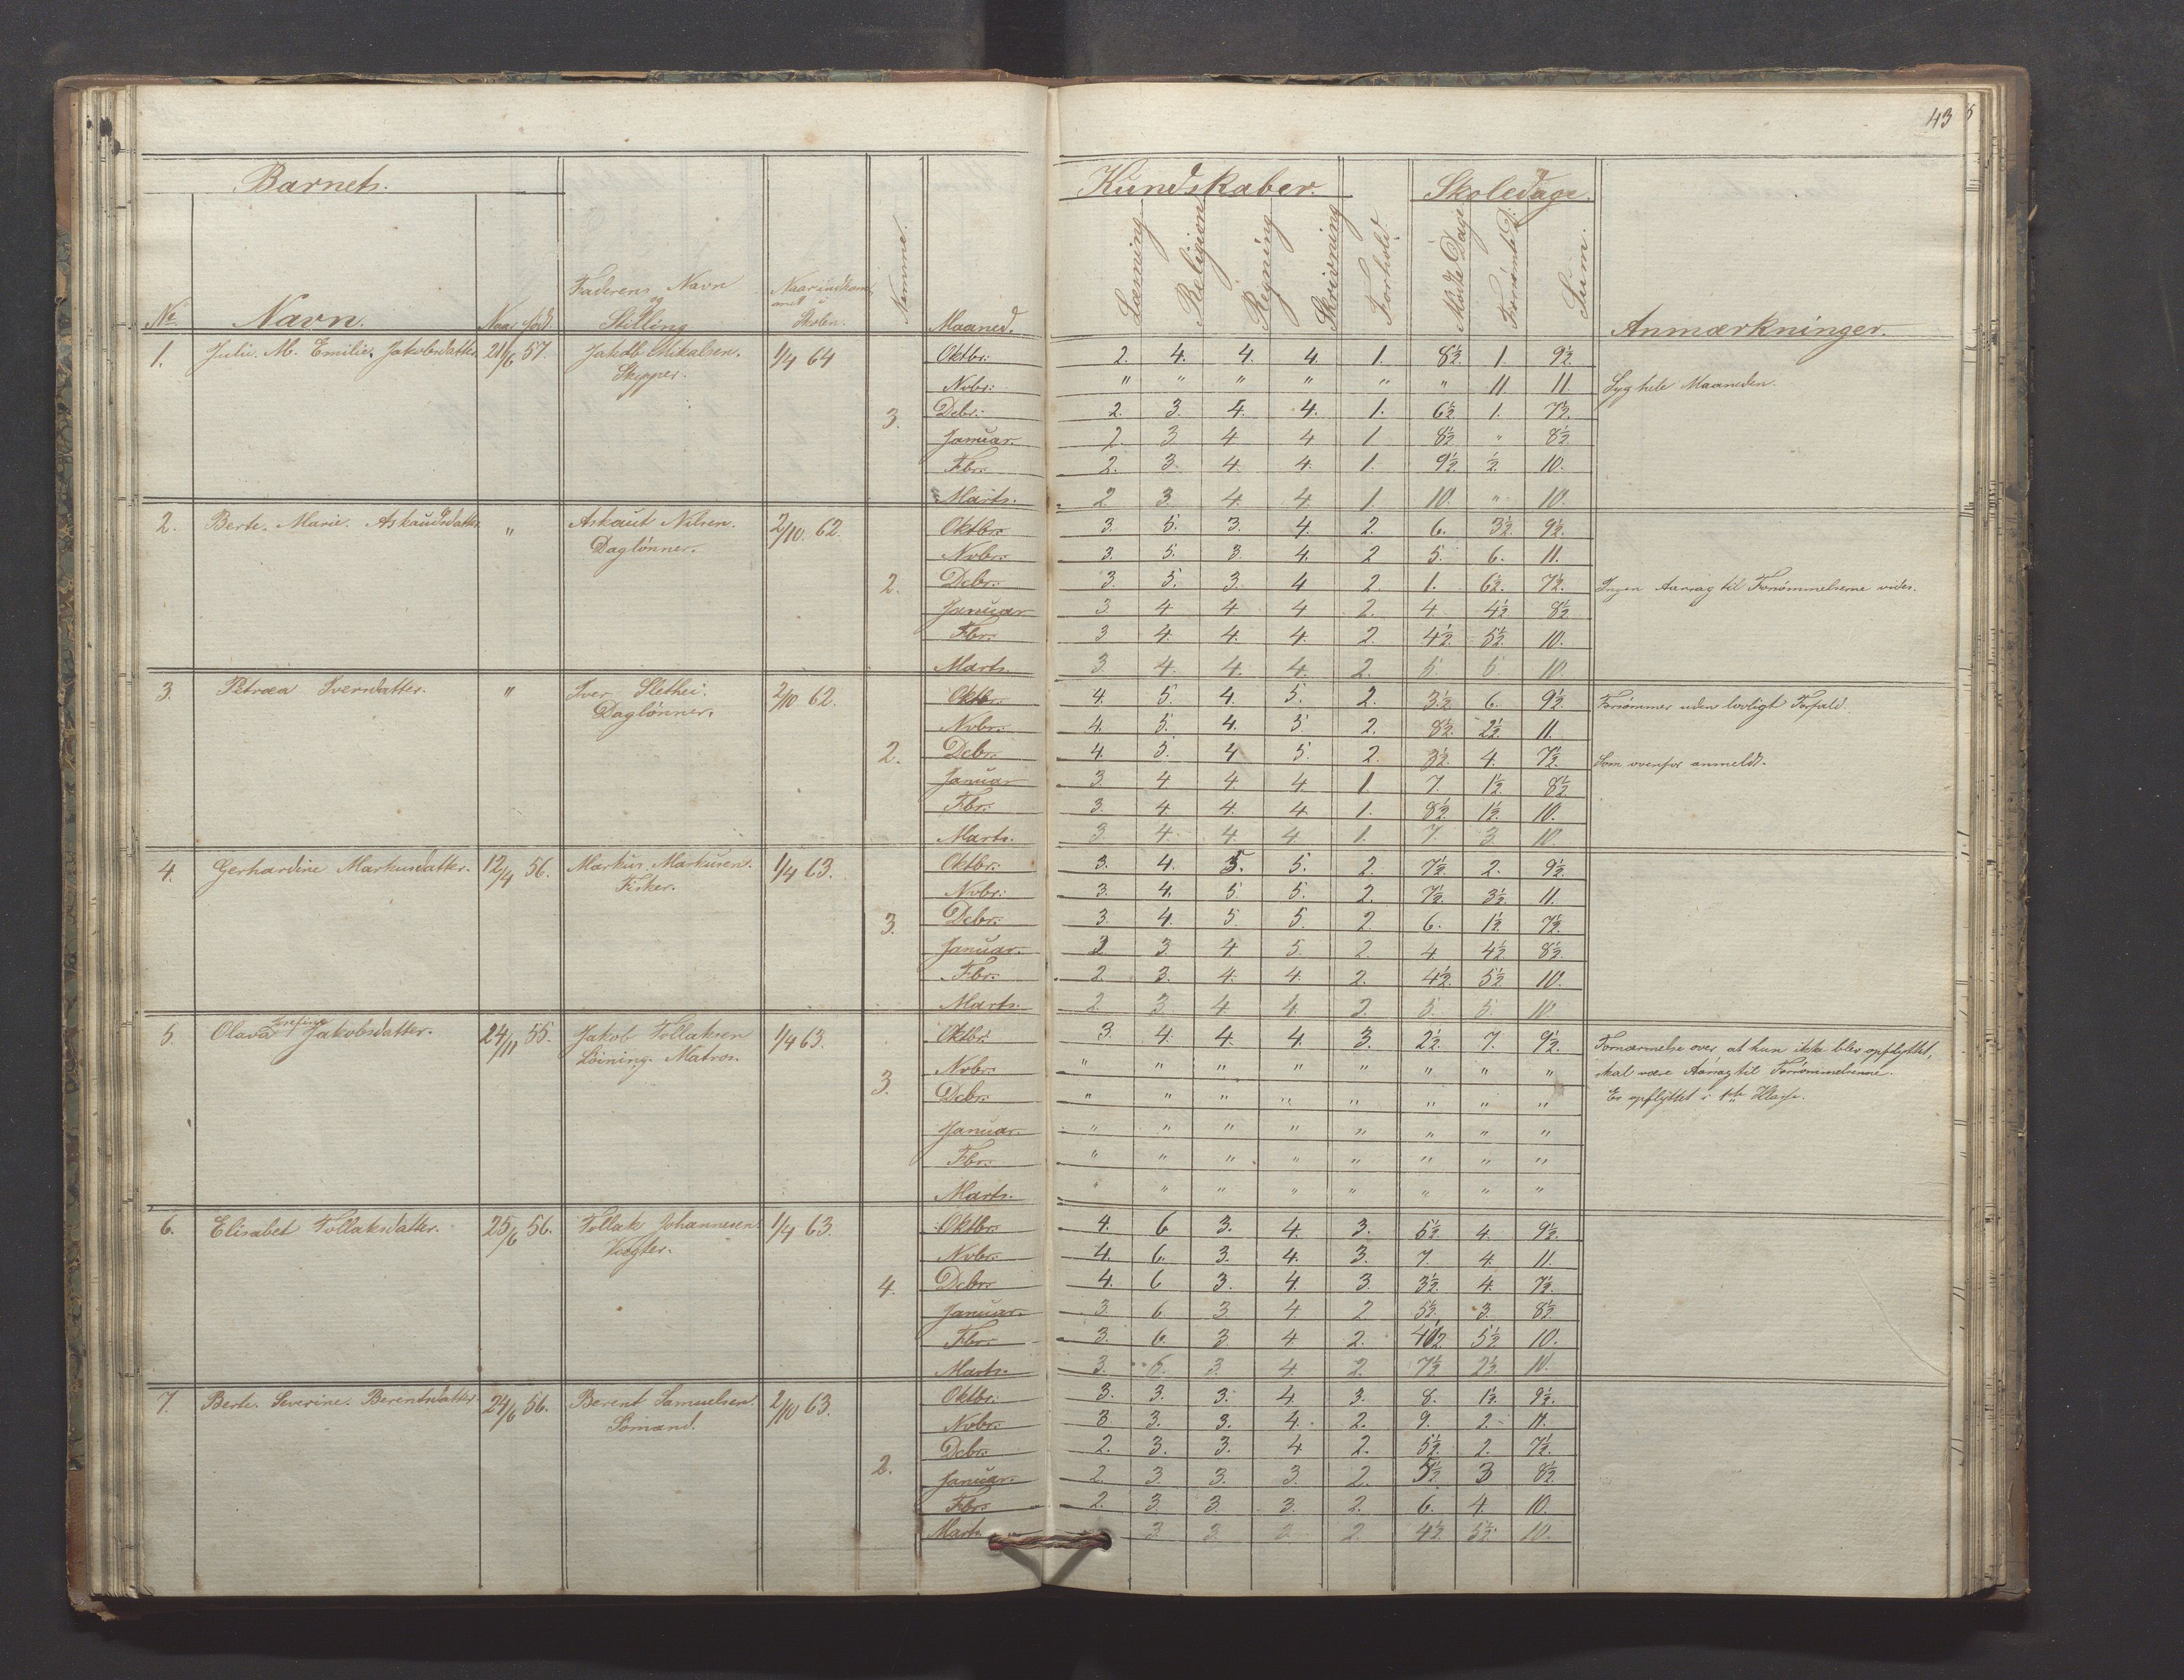 43
Barnets. Kundskaber. Skoledage.
No Navn. Naar født. Faderens Navn og Stilling Naar indkommet i Skolen. Nemme. Maaned. Læsning Religion Regning Skrivning Forhold. Mødte Dage Forsømte D. Sum. Anmærkninger.
1. Julie. M. Emilie. Jakobsdatter 21/6 57. Jakob Mikalsen. 1/4 64 Oktbr: 2. 4. 4. 4. 1. 8½. 1. 9½.
Skipper. Nvbr: " " " " " " 11 11. Syg hele Maaneden.
3. Debr: 2. 3. 4. 4. 1. 6½. 1. 7½.
Januar. 2. 3 4 4 1 8½ " 8½
Fbr: 2. 3. 4. 4. 1. 9½. ½. 10.
Marts. 2 3. 4 4 1. 10. " 10.
2. Berte. Marie. Askaudsdatter " Askaut Nilsen. 2/10. 62. Oktbr: 3. 5. 3. 4. 2. 6. 3½. 9½.
Daglønner. Nvbr: 3. 5. 3. 4. 2 5. 6. 11.
2. Debr: 3. 5. 3. 4 2. 1. 6½. 7½. Ingen Aarsag til Forsømmelserne vides.
Januar 3 4 4 4 2. 4 4½ 8½
Fbr: 3 4. 4. 4. 2. 4½. 5½. 10.
Marts. 3. 4. 4. 4. 2. 5 5. 10
3. Petræa Iversdatter. " Iver Slethei. 2/10 62. Oktbr: 4. 5. 4. 5. 2. 3½ 6. 9½ Forsømmer uden lovligt Forfald.
Daglønner. Nvbr: 4. 5. 4. 5 2. 8½. 2½. 11.
2. Debr: 4. 5. 4 5. 2. 3½ 4. 7½. Som ovenfor anmeldt.
Januar 3. 4 4. 4 1 7. 1½ 8½
Fbr: 3. 4 4. 4 1. 8½ 1½. 10.
Marts. 3. 4. 4. 4. 1. 7. 3. 10
4. Gerhardine Markusdatter. 12/4 56. Markus Markusen. 1/4 63. Oktbr: 3. 4. 5. 5. 2. 7½ 2. 9½.
Fisker. Nvbr: 3. 4. 5. 5. 2. 7½. 3½. 11.
3. Debr: 3. 4. 5 5. 2. 6. 1½. 7½.
Januar. 3 3. 4 5 2 4 4½ 8½.
Fbr: 2. 3. 4. 4. 2. 4½. 5½ 10.
Marts. 2. 3. 4 4. 2 5. 5. 10
5. Olava Josefine Jakobsdatter. 24/11 55. Jakob Tollaksen 1/4 63. Oktbr: 3. 4. 4. 4. 3. 2½. 7. 9½. Fornærmelse over, at hun ikke blev opflyttet,
Løining. Matros. Nvbr: " " " " " " " " skal være Aarsag til Forsømmelserne.
3. Debr: " " " " " " " " Er opflyttet i 1ste Klasse.
Januar. " " " " " " " "
Fbr: " " " " " " " "
Marts. " " " " " " " "
6. Elisabet Tollaksdatter. 25/6 56. Tollak Johannesen 1/4 63. Oktbr: 4. 6 3. 4. 3. 5½ 4. 9½.
Vægter. Nvbr: 4. 6. 3. 4. 3. 7 4. 11.
4. Debr: 4. 6 3. 4. 3. 3½. 4. 7½.
Januar. 3. 6 3 4 2 5½. 3. 8½.
Fbr: 3. 6. 3. 4 2. 4½ 5½. 10.
Marts. 3. 6. 3 4 2. 7½ 2½. 10
7. Berte. Severine. Berentsdatter 24/6 56. Berent Samuelsen. 2/10 63. Oktbr: 3. 3. 3. 4 3. 8. 1½. 9½.
Sømand. Nvbr: 3 3. 3. 4. 2. 9. 2. 11.
Debr: 2. 3. 3. 4 2. 5½. 2. 7½.
2. Januar. 2 3 3. 3. 2. 5½ 3 8½
Fbr: 2. 3 3 3. 2. 6. 4. 10.
Marts 3 3. 3 2. 4½. 5½. 10.